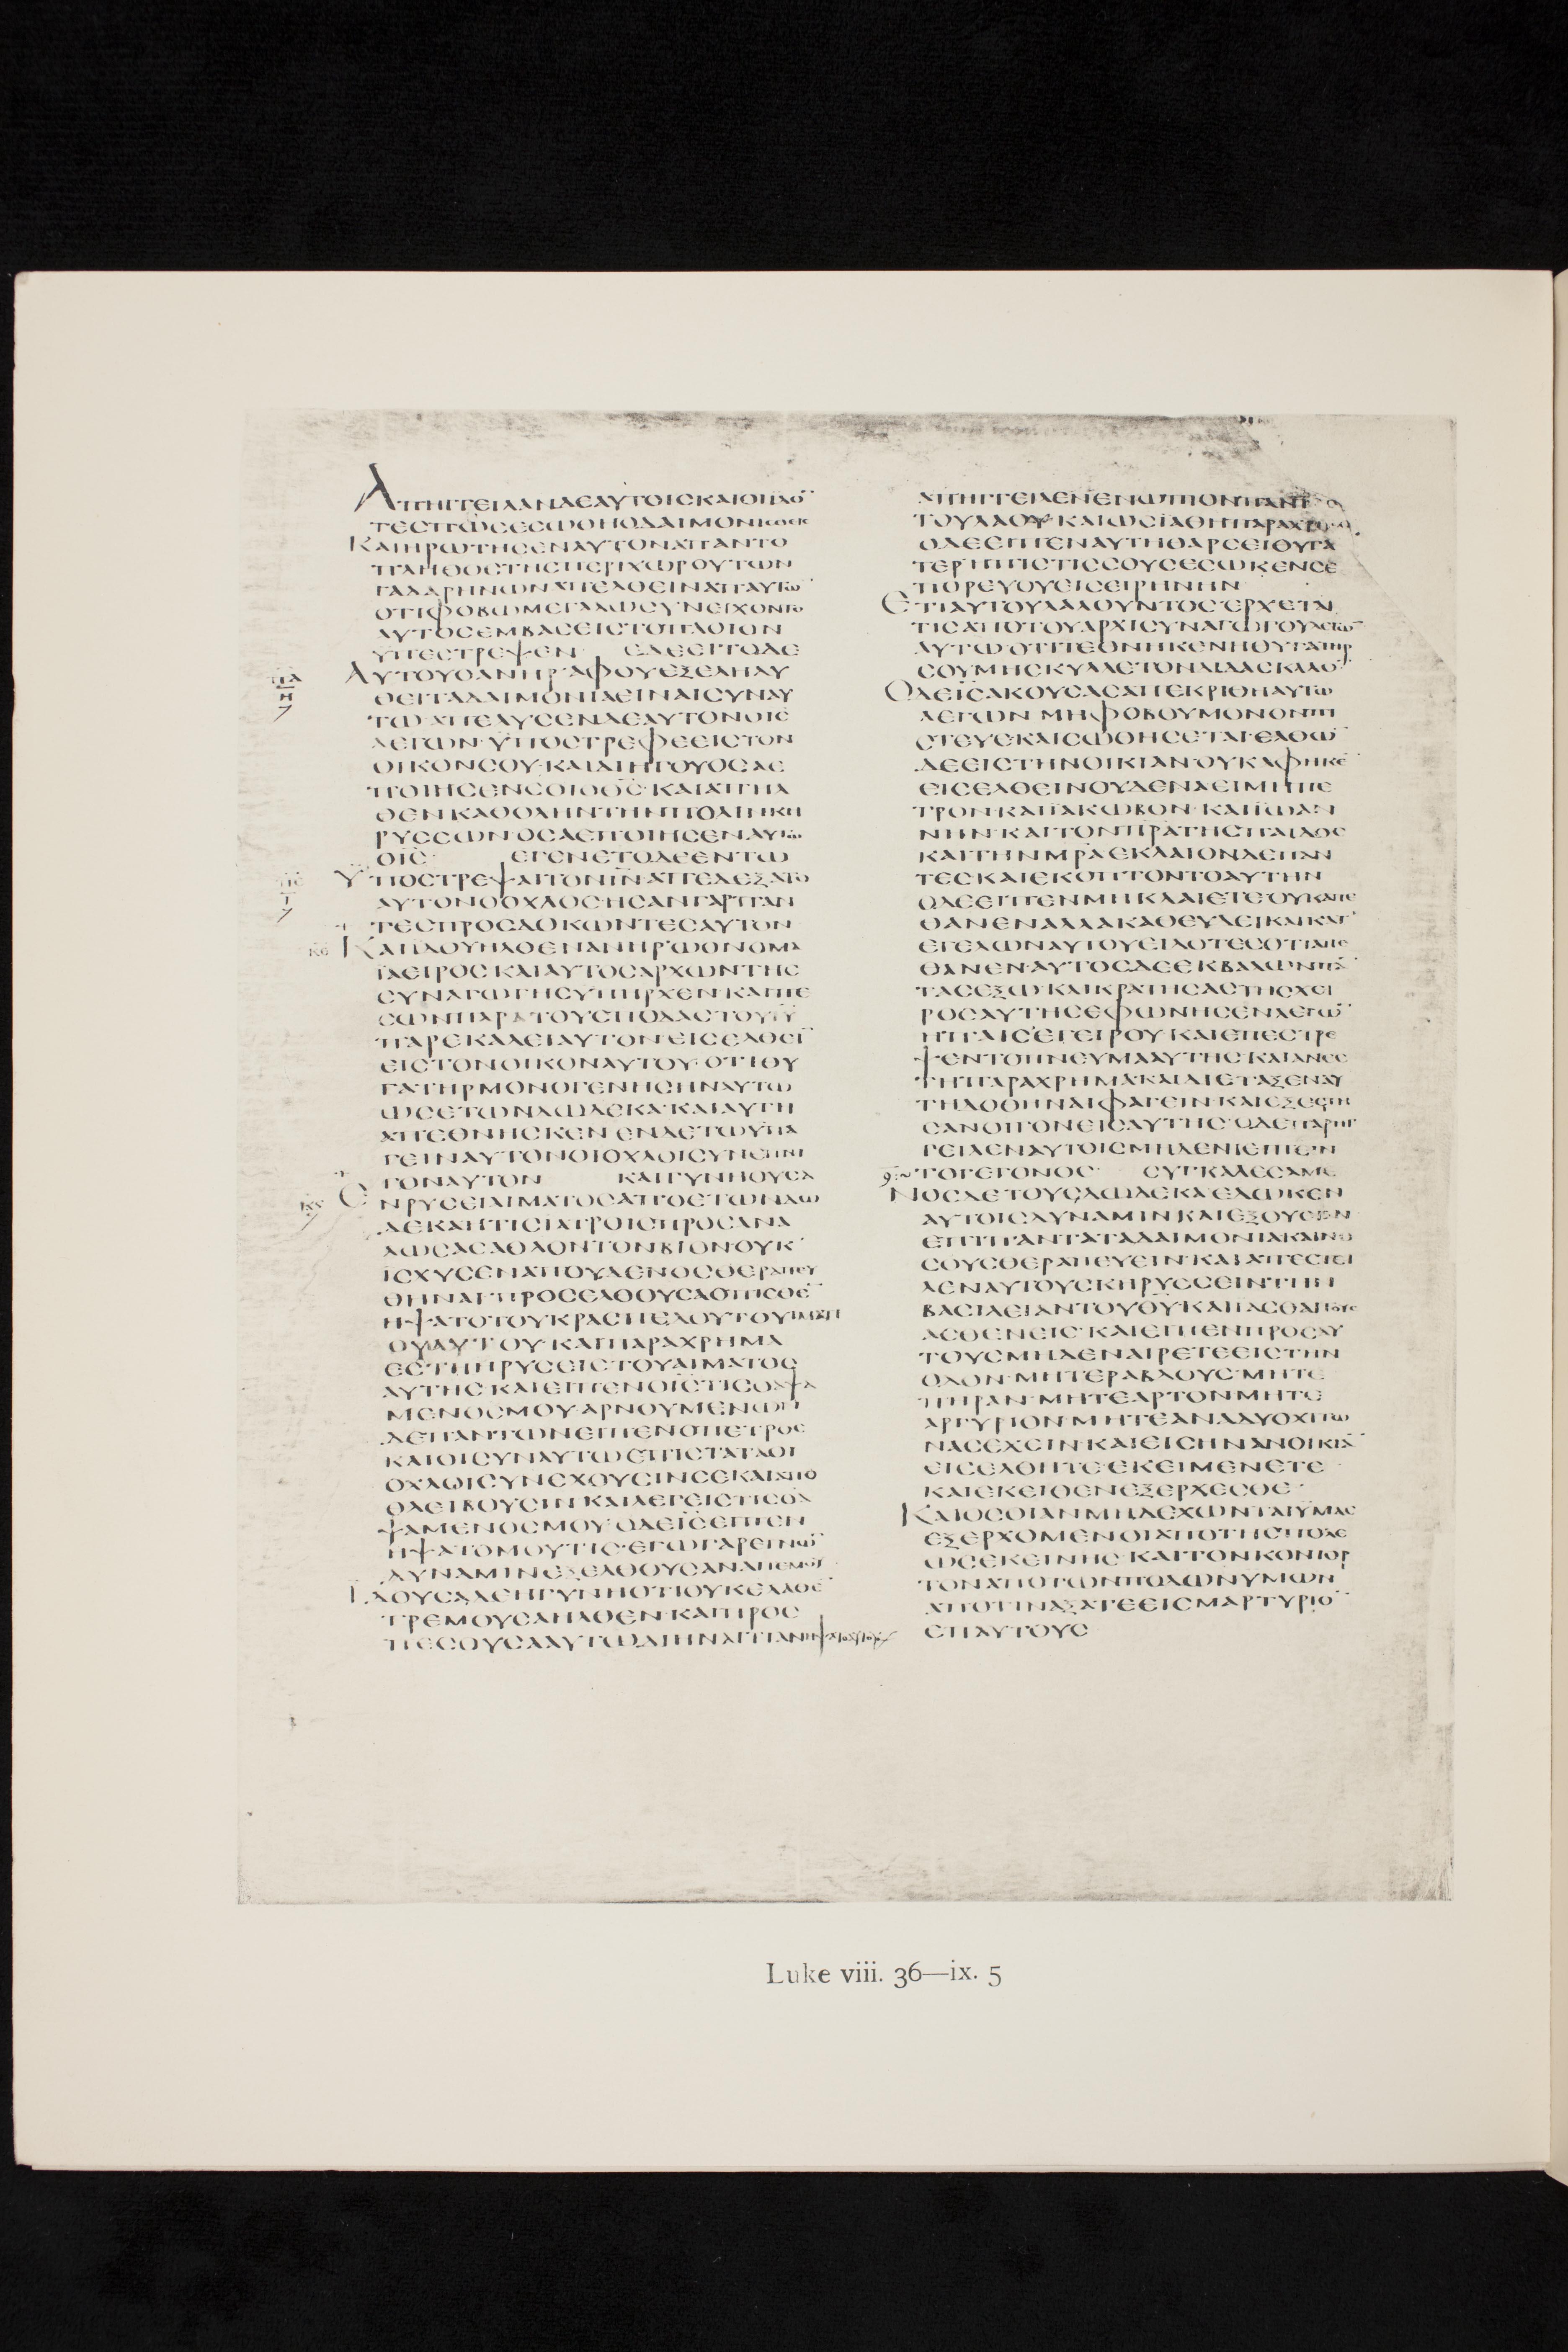 ΑΠΗΓΓΕΙΛΑΝΔΕΑΥΤΟΙϹΚΑΙΟΙΙΔΟ̅
ΤΕϹΠΩϹΕϹΩΘΗΟΔΑΙΜΟΝΙϹΘΕΙϹ
ΚΑΙΗΡΩΤΗϹΕΝΑΥΤΟΝΑΠΑΝΤΟ
ΠΛΗΘΟϹΤΗϹΠΕΡΙΧΩΡΟΥΤΩΝ
ΓΑΔΑΡΗΝΩΝΑΠΕΛΘΕΙΝΑΠΑΥΤΩ̅
ΟΤΙΦΟΒΩΜΕΓΑΛΩϹΥΝΕΙΧΟΝΤΟ
ΑΥΤΟϹΕΜΒΑϹΕΙϹΤΟΠΛΟΙΟΝ
ΥΠΕϹΤΡΕΨΕΝ ΕΔΕΕΙΤΟΔΕ
ΑΥΤΟΥΟΑΝΗΡ·ΑΦΟΥΕΞΕΛΗΛΥ
ΘΕΙΤΑΔΑΙΜΟΝΙΑΕΙΝΑΙϹΥΝΑΥ
ΤΩ·ΑΠΕΛΥϹΕΝΔΕΑΥΤΟΝΟΙ̅Ϲ̅
ΛΕΓΩΝ·ΥΠΟϹΤΡΕΦΕΕΙϹΤΟΝ
ΟΙΚΟΝϹΟΥ·ΚΑΙΔΙΗΓΟΥΟϹΑΕ
ΠΟΙΗϹΕΝϹΟΙΟΘ̅Ϲ̅·ΚΑΙΑΠΗΛ
ΘΕΝΚΑΘΟΛΗΝΤΗΝΠΟΛΙΝΚΗ
ΡΥϹϹΩΝ·ΟϹΑΕΠΟΙΗϹΕΝΑΥΤΩ
ΟΙ̅Ϲ̅ ΕΓΕΝΕΤΟΔΕΕΝΤΩ
ΥΠΟϹΤΡΕΨΑΙΤΟΝΙ̅Ν̅·ΑΠΕΔΕΞΑΤΟ
ΑΥΤΟΝΟΟΧΛΟϹ·ΗϹΑΝΓΑΡΠΑΝ
ΤΕϹΠΡΟϹΔΟΚΩΝΤΕϹΑΥΤΟΝ
ΚΑΙΙΔΟΥΗΛΘΕΝΑΝΗΡΩΟΝΟΜΑ
ΙΑΕΙΡΟϹΚΑΙΑΥΤΟϹΑΡΧΩΝΤΗϹ
ϹΥΝΑΓΩΓΗϹΥΠΗΡΧΕΝ·ΚΑΙΠΕ
ϹΩΝΠΑΡΑΤΟΥϹΠΟΔΑϹΤΟΥΙ̅Υ̅
ΠΑΡΕΚΑΛΕΙΑΥΤΟΝΕΙϹΕΛΘΕΙ̅
ΕΙϹΤΟΝΟΙΚΟΝΑΥΤΟΥ·ΟΤΙΘΥ
ΓΑΤΗΡΜΟΝΟΓΕΝΗϹΗΝΑΥΤΩ
ΩϹΕΤΩΝΔΩΔΕΚΑ·ΚΑΙΑΥΤΗ
ΑΠΕΘΝΗϹΚΕΝ ΕΝΔΕΤΩΥΠΑ
ΓΕΙΝΑΥΤΟΝΟΙΟΧΛΟΙϹΥΝΕΠΝΙ
ΓΟΝΑΥΤΟΝ ΚΑΙΓΥΝΗΟΥϹΑ
ΕΝΡΥϹΕΙΑΙΜΑΤΟϹΑΠΟΕΤΩΝΔΩ
ΔΕΚΑΗΤΙϹΙΑΤΡΟΙϹΠΡΟϹΑΝΑ
ΛΩϹΑϹΑΟΛΟΝΤΟΝΒΙΟΝΟΥΚ
ΙϹΧΥϹΕΝΑΠΟΥΔΕΝΟϹΘΕΡΑΠΕΥ
ΘΗΝΑΙ·ΠΡΟϹΕΛΘΟΥϹΑΟΠΙϹΘΕ̅
ΗΨΑΤΟΤΟΥΚΡΑϹΠΕΔΟΥΤΟΥΙΜΑΤΙ
ΟΥΑΥΤΟΥ·ΚΑΙΠΑΡΑΧΡΗΜΑ
ΕϹΤΗΗΡΥϹΕΙϹΤΟΥΑΙΜΑΤΟϹ
ΑΥΤΗϹ·ΚΑΙΕΙΠΕΝΟΙ̅Ϲ̅ΤΙϹΟΑΨΑ
ΜΕΝΟϹΜΟΥ·ΑΡΝΟΥΜΕΝΩΝ
ΔΕΠΑΝΤΩΝΕΙΠΕΝΟΠΕΤΡΟϹ
ΚΑΙΟΙϹΥΝΑΥΤΩ·ΕΠΙϹΤΑΤΑΟΙ
ΟΧΛΟΙϹΥΝΕΧΟΥϹΙΝϹΕΚΑΙΑΠΟ
ΘΛΕΙΒΟΥϹΙΝ·ΚΑΙΛΕΓΕΙϹΤΙϹΟΑ
ΨΑΜΕΝΟϹΜΟΥ·ΟΔΕΙ̅Ϲ̅ΕΙΠΕΝ
ΗΨΑΤΟΜΟΥΤΙϹ·ΕΓΩΓΑΡΕΓΝΩ̅
ΔΥΝΑΜΙΝΕΞΕΛΘΟΥϹΑΝΑΠΕΜΟΥ
ΙΔΟΥϹΑΔΕΗΓΥΝΗΟΤΙΟΥΚΕΛΑΘΕ̅
ΤΡΕΜΟΥϹΑΗΛΘΕΝ·ΚΑΙΠΡΟϹ
ΠΕϹΟΥϹΑΑΥΤΩΔΙΗΝΑΙΤΙΑΝΗΨΑΤΟΑΥΤΟΥ
ΑΠΗΓΓΕΙΛΕΝΕΝΩΠΙΟΝΠΑΝΤΟϹ
ΤΟΥΛΑΟΥ·ΚΑΙΩϹΙΑΘΗΠΑΡΑΧΡΗΜΑ
ΟΔΕΕΙΠΕΝΑΥΤΗΘΑΡϹΕΙΘΥΓΑ
ΤΕΡΗΠΙϹΤΙϹϹΟΥϹΕϹΩΚΕΝϹΕ
ΠΟΡΕΥΟΥΕΙϹΕΙΡΗΝΗΝ
ΕΤΙΑΥΤΟΥΛΑΛΟΥΝΤΟϹΕΡΧΕΤΑΙ
ΤΙϹΑΠΟΤΟΥΑΡΧΙϹΥΝΑΓΩΓΟΥΛΕΓΩ̅
ΑΥΤΩ·ΟΤΙΤΕΘΝΗΚΕΝΗΘΥΓΑΤΗΡ
ϹΟΥΜΗϹΚΥΛΛΕΤΟΝΔΙΔΑϹΚΑΛΟ̅
ΟΔΕΙ̅Ϲ̅ΑΚΟΥϹΑϹΑΠΕΚΡΙΘΗΑΥΤΩ
ΛΕΓΩΝ·ΜΗΦΟΒΟΥΜΟΝΟΝΠΙ
ϹΤΕΥΕ·ΚΑΙϹΩΘΗϹΕΤΑΙ·ΕΛΘΩ̅
ΔΕΕΙϹΤΗΝΟΙΚΙΑΝ·ΟΥΚΑΦΗΚΕ̅
ΕΙϹΕΛΘΕΙΝΟΥΔΕΝΑΕΙΜΗΠΕ
ΤΡΟΝ·ΚΑΙΙΑΚΩΒΟΝ·ΚΑΙΙΩΑΝ
ΝΗΝ·ΚΑΙΤΟΝΠ̅Ρ̅Α̅ΤΗϹΠΑΙΔΟϹ
ΚΑΙΤΗΝΜ̅Ρ̅Α̅·ΕΚΛΑΙΟΝΔΕΠΑΝ
ΤΕϹΚΑΙΕΚΟΠΤΟΝΤΟΑΥΤΗΝ
ΟΔΕΕΙΠΕΝΜΗΚΛΑΙΕΤΕΟΥΚΑΠΕ
ΘΑΝΕΝΑΛΛΑΚΑΘΕΥΔΕΙ·ΚΑΙΚΑΤ
ΕΓΕΛΩΝΑΥΤΟΥΕΙΔΟΤΕϹΟΤΙΑΠΕ
ΘΑΝΕΝ·ΑΥΤΟϹΔΕΕΚΒΑΛΩΝΠΑ̅
ΤΑϹΕΞΩ·ΚΑΙΚΡΑΤΗϹΑϹΤΗϹΧΕΙ
ΡΟϹΑΥΤΗϹΕΦΩΝΗϹΕΝΛΕΓΩ̅
ΗΠΑΙϹΕΓΕΙΡΟΥ·ΚΑΙΕΠΕϹΤΡΕ
ΨΕΝΤΟΠΝΕΥΜΑΑΥΤΗϹ·ΚΑΙΑΝΕϹ
ΤΗΠΑΡΑΧΡΗΜΑ·ΚΑΙΔΙΕΤΑΞΕΝΑΥ
ΤΗΔΟΘΗΝΑΙΦΑΓΕΙΝ·ΚΑΙΕΞΕϹΤΗ
ϹΑΝΟΙΓΟΝΕΙϹΑΥΤΗϹ·ΟΔΕΠΑΡΗΓ
ΓΕΙΛΕΝΑΥΤΟΙϹΜΗΔΕΝΙΕΙΠΕΙΝ
ΤΟΓΕΓΟΝΟϹ· ϹΥΓΚΑΛΕϹΑΜΕ
ΝΟϹΔΕΤΟΥϹΔΩΔΕΚΑ·ΕΔΩΚΕΝ
ΑΥΤΟΙϹΔΥΝΑΜΙΝΚΑΙΕΞΟΥϹΙΑΝ
ΕΠΙΠΑΝΤΑΤΑΔΑΙΜΟΝΙΑΚΑΙΝΟ
ϹΟΥϹΘΕΡΑΠΕΥΕΙΝ·ΚΑΙΑΠΕϹΤΕΙ
ΛΕΝΑΥΤΟΥϹΚΗΡΥϹϹΕΙΝΤΗΝ
ΒΑϹΙΛΕΙΑΝΤΟΥΘ̅Υ̅·ΚΑΙΙΑϹΘΑΙΤΟΥϹ
ΑϹΘΕΝΕΙϹ·ΚΑΙΕΙΠΕΝΠΡΟϹΑΥ
ΤΟΥϹΜΗΔΕΝΑΙΡΕΤΕΕΙϹΤΗΝ
ΟΔΟΝ·ΜΗΤΕΡΑΒΔΟΥϹ·ΜΗΤΕ
ΠΗΡΑΝ·ΜΗΤΕΑΡΤΟΝΜΗΤΕ
ΑΡΓΥΡΙΟΝ·ΜΗΤΕΑΝΑΔΥΟΧΙΤΩ
ΝΑϹΕΧΕΙΝ·ΚΑΙΕΙϹΗΝΑΝΟΙΚΙΑ̅
ΕΙϹΕΛΘΗΤΕ·ΕΚΕΙΜΕΝΕΤΕ
ΚΑΙΕΚΕΙΘΕΝΕΞΕΡΧΕϹΘΕ·
ΚΑΙΟϹΟΙΑΝΜΗΔΕΧΩΝΤΑΙΥΜΑϹ
ΕΞΕΡΧΟΜΕΝΟΙΑΠΟΤΗϹΠΟΛΕ
ΩϹΕΚΕΙΝΗϹ·ΚΑΙΤΟΝΚΟΝΙΟΡ
ΤΟΝΑΠΟΤΩΝΠΟΔΩΝΥΜΩΝ
ΑΠΟΤΙΝΑΞΑΤΕΕΙϹΜΑΡΤΥΡΙΟ̅
ΕΠΑΥΤΟΥϹ
Luke viii. 36—ix. 5